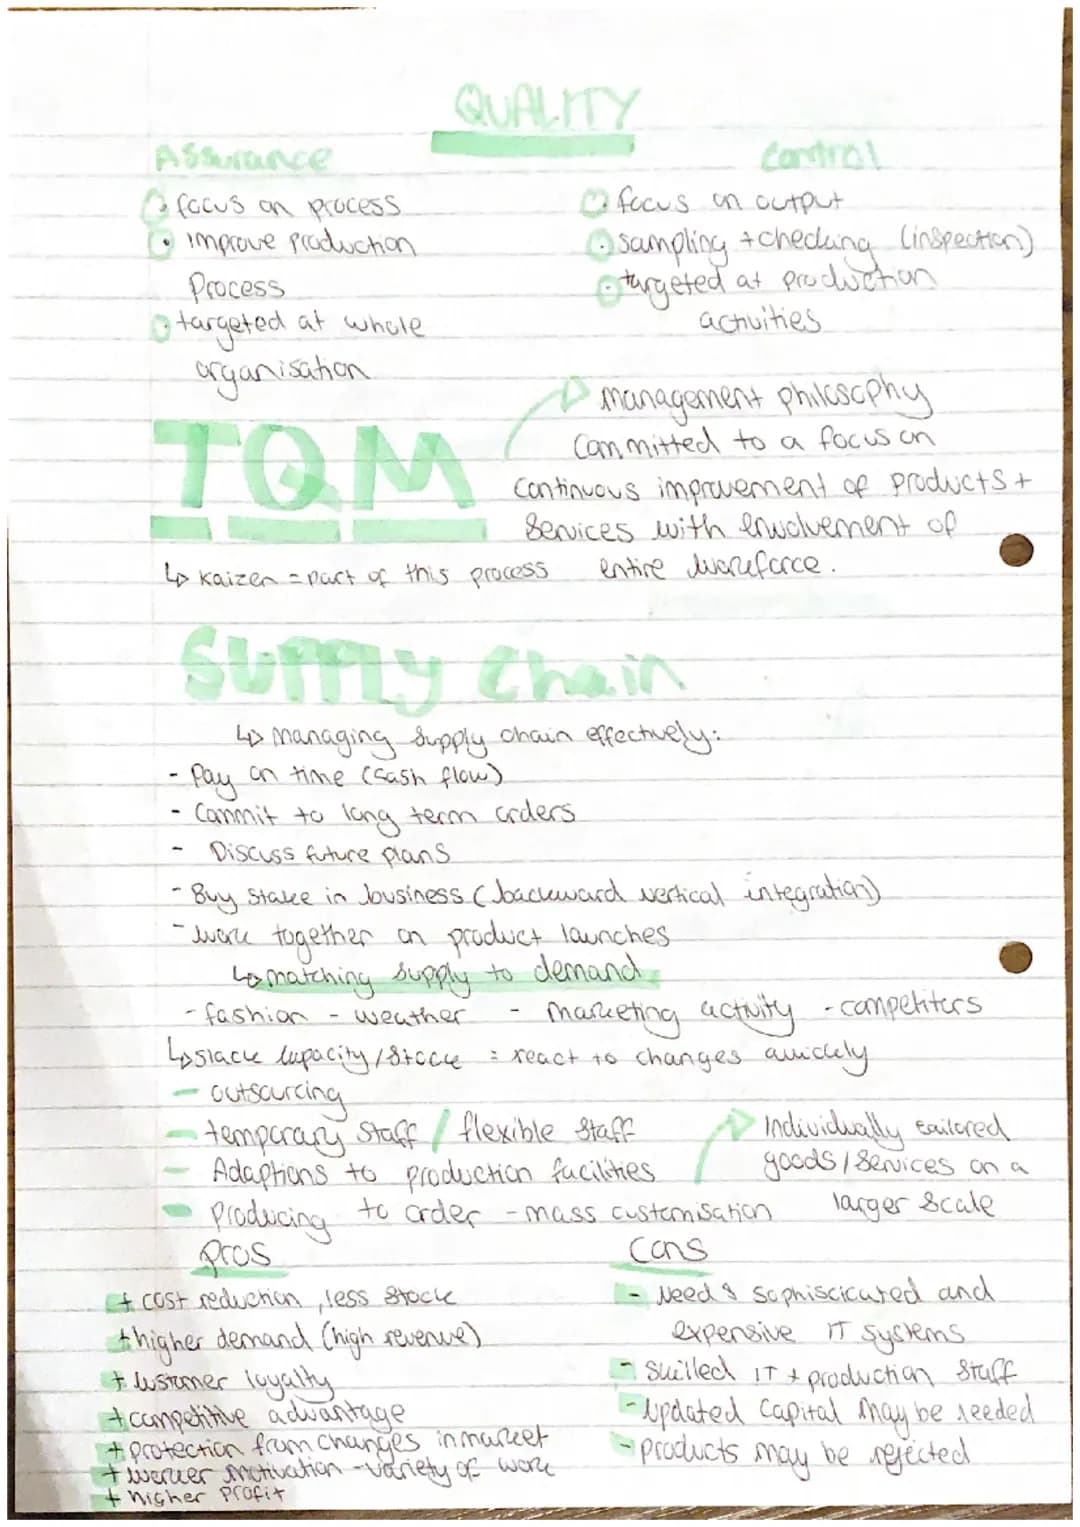 QUALITY
Assurance
• focus on process
• improve production
Process
• targeted at whole
organisation
Control
• focus on output
• sampling + checking (inspection)
• targeted at production
activities
TQM
management philosophy
Committed to a focus on
Continuous improvement of products +
Services with envolvement of
entire workforce.
↳ Kaizen = part of this process
SUPPLY Chain
↳ managing supply chain effectively:
- Pay on time (cash flow)
- Commit to long term orders
- Discuss future plans
- Buy stake in business (backward vertical integration)
- work together on product launches
↳ matching supply to demand
- fashion - weather - marketing activity - competitors
↳ slack capacity/stock = react to changes quickly
- outsourcing
- temporary staff / flexible staff
- Adaptions to production facilities
- Producing to order - mass customisation
Individually tailored
goods/services on a
larger scale
Pros
+ cost reduction, less stock
+ higher demand (high revenue)
+ customer loyalty
+ competitive advantage
+ protection from changes in market
+ worker motivation - variety of work
+ higher profit
Cons
- Needs sophiscicated and
expensive IT systems
- Skilled IT + production staff
- Updated capital may be needed
- products may be rejected